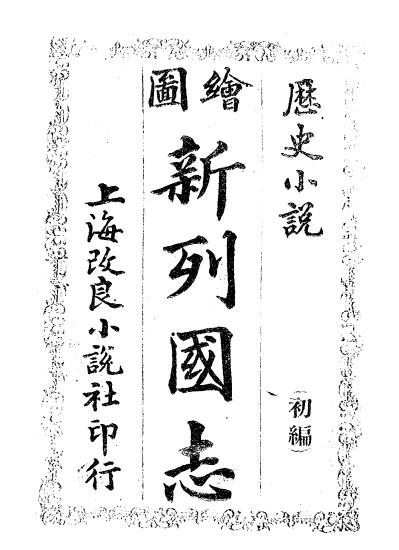 歷史小說
(初編)
繪圖
新列國志
上海改良小說社印行